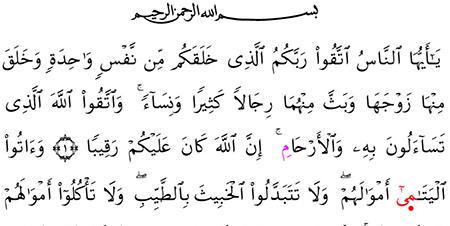 بِسْمِ ٱللَّهِ ٱلرَّحْمَٰنِ ٱلرَّحِيمِ
يَٰٓأَيُّهَا ٱلنَّاسُ ٱتَّقُوا۟ رَبَّكُمُ ٱلَّذِى خَلَقَكُم مِّن نَّفْسٍ وَٰحِدَةٍ وَخَلَقَ
مِنْهَا زَوْجَهَا وَبَثَّ مِنْهُمَا رِجَالًا كَثِيرًا وَنِسَآءً ۚ وَٱتَّقُوا۟ ٱللَّهَ ٱلَّذِى
تَسَآءَلُونَ بِهِۦ وَٱلْأَرْحَامِ ۚ إِنَّ ٱللَّهَ كَانَ عَلَيْكُمْ رَقِيبًا ﴿١﴾ وَءَاتُوا۟
ٱلْيَتَٰمِىٓ أَمْوَٰلَهُمْ ۖ وَلَا تَتَبَدَّلُوا۟ ٱلْخَبِيثَ بِٱلطَّيِّبِ ۖ وَلَا تَأْكُلُوٓا۟ أَمْوَٰلَهُمْ